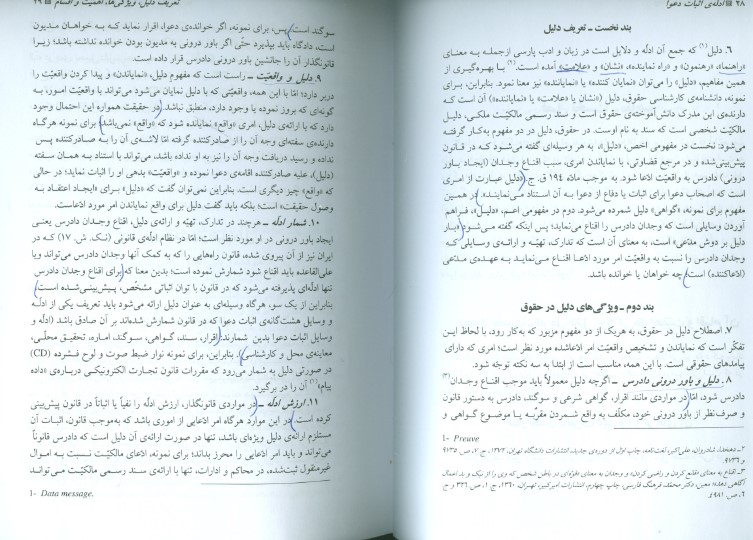 ۲۸ ■ ادله‌ی اثبات دعوا
بند نخست ـ تعریف دلیل
۶. دلیل(۱) که جمع آن ادلّه و دلایل است در زبان و ادب پارسی ازجمله به معنای
«راهنما»، «رهنمون» و «راه نماینده»، «نشان» و «علامت» آمده است.(۲) با بهره‌گیری از
همین مفاهیم، «دلیل» را می‌توان «نمایان کننده» یا «نمایاننده» نیز معنا نمود. بنابراین، برای
نمونه، دانشنامه‌ی کارشناسی حقوق، دلیل («نشان یا «علامت» یا «نمایاننده») آن است که
دارنده‌ی این مدرک دانش‌آموخته‌ی حقوق است و سند رسمی مالکیّت ملکی، دلیل
مالکیّت شخصی است که سند به نام اوست. در حقوق، دلیل در دو مفهوم به‌کار گرفته
می‌شود: نخست در مفهومی اخص، «دلیل»، به هر وسیله‌ای گفته می‌شود که در قانون
پیش‌بینی‌شده و در مرجع قضاوتی، با نمایاندن امری، سبب اقناع وجدان (ایجاد باور
درونی) دادرس به واقعیّت ادعا شود. به موجب ماده ۱۹۴ ق. ج. «دلیل عبارت از امری
است که اصحاب دعوا برای اثبات یا دفاع از دعوا به آن استناد می‌نمایند». در همین
مفهوم برای نمونه، «گواهی» دلیل شمرده می‌شود. دوم در مفهومی اعم، «دلیل»، فراهم
آوردن وسایلی است که وجدان دادرس را اقناع می‌نماید؛ پس اینکه گفته می‌شود «بار
دلیل بر دوش مدّعی» است، به معنای آن است که تدارک، تهیّه و ارائه‌ی وسایلی که
وجدان دادرس را نسبت به واقعیّت امر مورد ادعا اقناع می‌نماید به عهده‌ی مدّعی
(ادعاکننده) است؛ چه خواهان یا خوانده باشد.
بند دوم ـ ویژگی‌های دلیل در حقوق
۷. اصطلاح دلیل در حقوق، به هریک از دو مفهوم مزبور که به‌کار رود، با لحاظ این
تفکّر است که نمایاندن و تشخیص واقعیّت امر ادعاشده مورد نظر است؛ امری که دارای
پیامدهای حقوقی است. با این همه، مناسب است از ابتدا به سه نکته توجّه شود.
۸. دلیل و باور درونی دادرس ـ اگرچه دلیل معمولاً باید موجب اقناع وجدان(۳)
دادرس شود، امّا در مواردی مانند اقرار، گواهی شرعی و سوگند، دادرس به دستور قانون
و صرف‌نظر از باور درونی خود، مکلّف به واقع شمردن مفرّبه یا موضوع گواهی و
1- Preuve
۲ـ دهخدا، شادروان، علی‌اکبر، لغت‌نامه، چاپ اول از دوره‌ی جدید، انتشارات دانشگاه تهران، ۱۳۷۲، ج ۷، ص ۹۷۳۵
و ۹۷۳۶.
۳ـ اقناع به معنای «قانع کردن» و «راضی کردن» و وجدان به معنای «قوّه‌ای در باطن شخص که وی را از نیک و بد اعمال
آگاهی دهد» معین، دکتر محمّد، فرهنگ فارسی، چاپ چهارم، انتشارات امیرکبیر، تهران، ۱۳۶۰، ج ۱، ص ۳۲۶ و ج
۴، ص ۴۹۸۱.
تعریف دلیل، ویژگی‌ها، اهمّیّت و اقسام ■ ۲۹
سوگند است. پس، برای نمونه، اگر خوانده‌ی دعوا، اقرار نماید که به خواهان مدیون
است، دادگاه باید بپذیرد حتّی اگر باور درونی به مدیون بودن خوانده نداشته باشد؛ زیرا
قانونگذار آن را جانشین باور درونی دادرس قرار داده است.
۹. دلیل و واقعیّت ـ راست است که مفهوم دلیل، «نمایاندن» و پیدا کردن واقعیّت را
دربر دارد؛ امّا با این همه، واقعیّتی که با دلیل نمایان می‌شود می‌تواند با واقعیّت امور، به
گونه‌ای که بروز نموده یا وجود دارد، منطبق نباشد. در حقیقت همواره این احتمال وجود
دارد که با ارائه‌ی دلیل، امری «واقع» نمایانده شود که «واقع» نمی‌باشد. برای نمونه هرگاه
دارنده‌ی سفته‌ای وجه آن را از صادرکننده گرفته امّا لاشه‌ی آن را به صادرکننده پس
نداده و رسید دریافت وجه آن را نیز به او نداده باشد، می‌تواند با استناد به همان سفته
(دلیل)، علیه صادرکننده اقامه‌ی دعوا نموده و «واقعیّت» بدهی او را اثبات نماید؛ در حالی
که «واقع» چیز دیگری است. بنابراین نمی‌توان گفت که «دلیل» برای «ایجاد اعتقاد به
وصول حقیقت» است؛ بلکه باید گفت دلیل برای واقع نمایاندن امر مورد ادعاست.
۱۰. شمار ادله ـ هرچند در تدارک، تهیّه و ارائه‌ی دلیل، اقناع وجدان دادرس یعنی
ایجاد باور درونی در او مورد نظر است؛ امّا در نظام ادلّه‌ی قانونی (نـک. ش. ۱۷) که در
ایران نیز از آن پیروی شده، قانون راه‌هایی را که به کمک آنها وجدان دادرس می‌تواند و یا
علی‌القاعده باید اقناع شود شمارش نموده است؛ بدین معنا که برای اقناع وجدان دادرس
تنها ادلّه‌ای پذیرفته می‌شود که در قانون با توان اثباتی مشخّص، پیش‌بینی‌شده است.
بنابراین از یک سو، هرگاه وسیله‌ای به عنوان دلیل ارائه می‌شود باید تعریف یکی از ادلّه
و وسایل هشت‌گانه‌ی اثبات دعوا که در قانون شمارش شده‌اند بر آن صادق باشد (ادله و
وسایل اثبات دعوا بدین شمارند: اقرار، سند، گواهی، سوگند، اماره، تحقیق محلّی،
معاینه‌ی محل و کارشناسی). بنابراین، برای نمونه نوار ضبط صوت و لوح فشرده (CD)
در صورتی دلیل به شمار می‌رود که مقررات قانون تجارت الکترونیکی درباره‌ی «داده
پیام»(۱) آن را در برگیرد.
۱۱. ارزش ادله ـ در مواردی قانونگذار، ارزش ادلّه را نفیاً یا اثباتاً در قانون پیش‌بینی
کرده است. در این موارد هرگاه امر ادعایی از اموری باشد که به‌موجب قانون، اثبات آن
مستلزم ارائه‌ی دلیل ویژه‌ای باشد، تنها در صورت ارائه‌ی آن دلیل است که دادرس قانوناً
می‌تواند و باید امر ادعایی را محرز بداند؛ برای نمونه، ادعای مالکیّت نسبت به اموال
غیرمنقول ثبت‌شده، در محاکم و ادارات، تنها با ارائه‌ی سند رسمی مالکیّت می‌تواند
1- Data message.